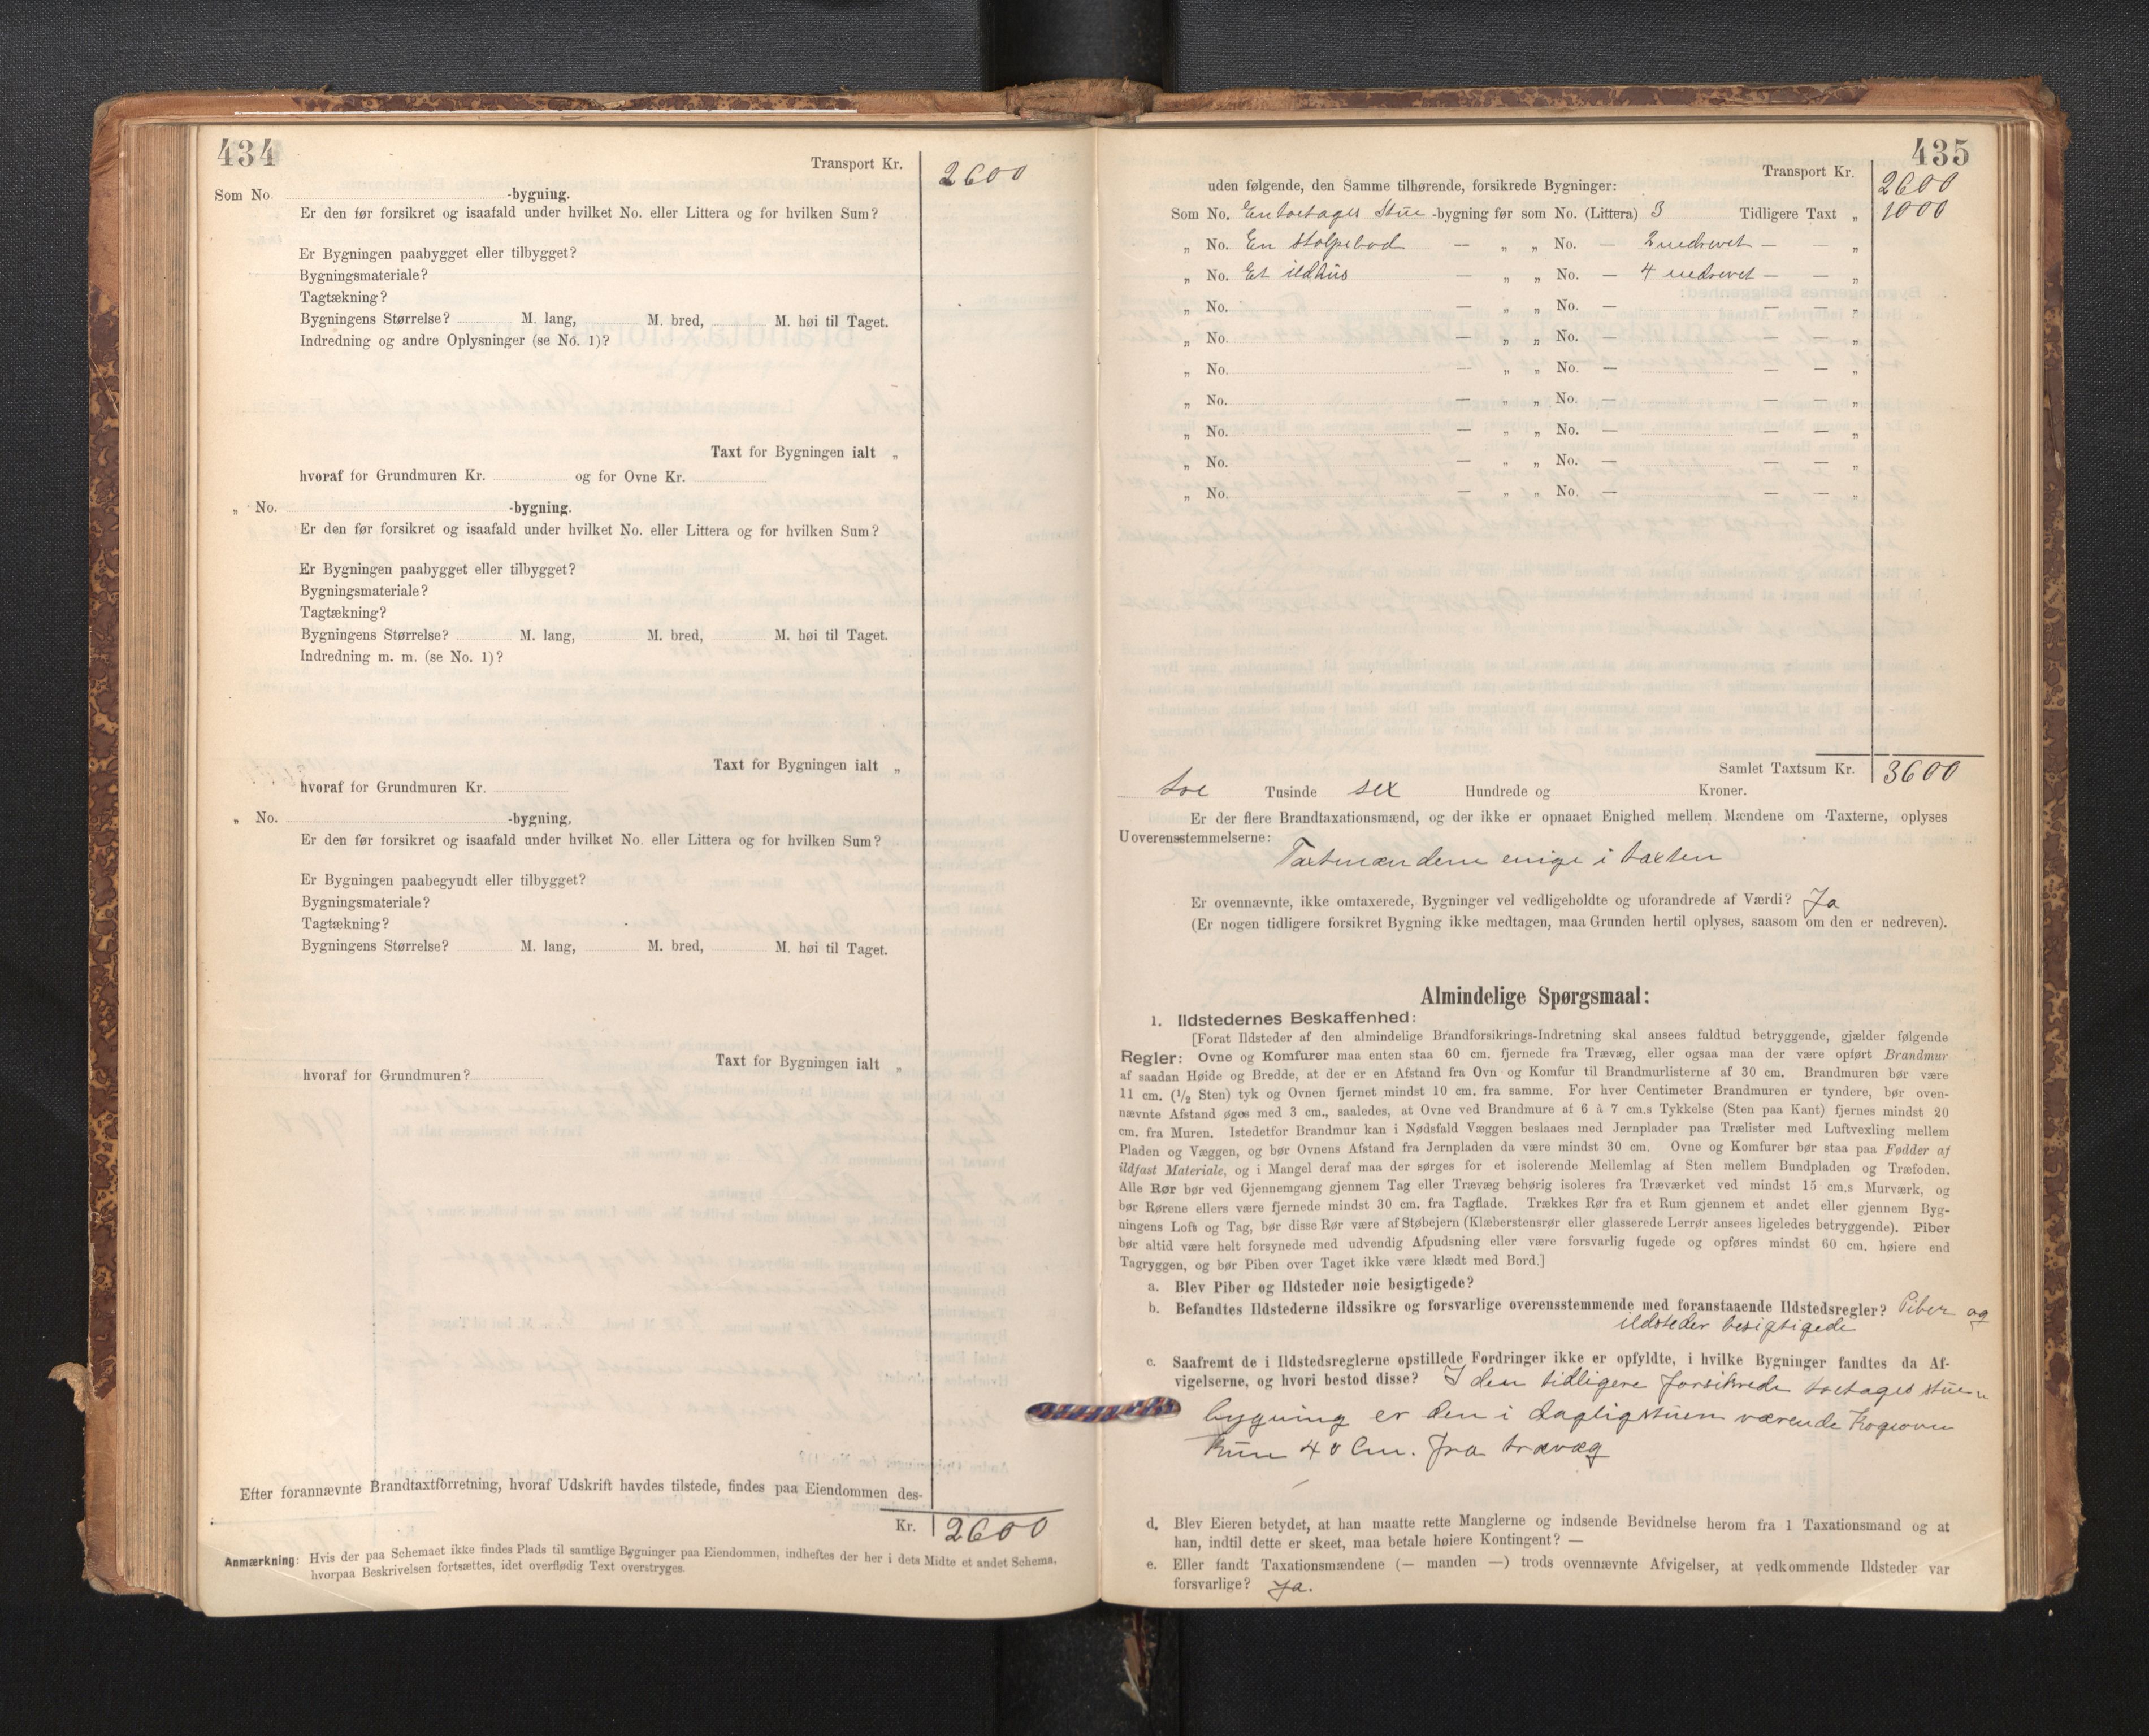 434
Transport Kr. 2600
Som No. -bygning.
Er den før forsikret og isaafald under hvilket No. eller Littera og for hvilken Sum?
Er Bygningen paabygget eller tilbygget?
Bygningsmateriale?
Tagtækning?
Bygningens Størrelse? M. lang, M. bred, M. høi til Taget.
Indredning og andre Oplysninger (se No. 1)?
Taxt for Bygningen ialt „
hvoraf for Grundmuren Kr. og for Ovne Kr.
„ No. -bygning.
Er den før forsikret og isaafald under hvilket No. eller Littera og for hvilken Sum?
Er Bygningen paabygget eller tilbygget?
Bygningsmateriale?
Tagtækning?
Bygningens Størrelse? M. lang, M. bred, M. høi til Taget.
Indredning m. m. (se No. 1)?
Taxt for Bygningen ialt „
hvoraf for Grundmuren Kr.
„ No. -bygning,
Er den før forsikret og isaafald under hvilket No. eller Littera og for hvilken Sum?
Er Bygningen paabegyudt eller tilbygget?
Bygningsmateriale?
Tagtækning?
Bygningens Størrelse? M. lang, M. bred, M. høi til Taget.
Taxt for Bygningen ialt „
hvoraf for Grundmuren?
Efter forannævnte Brandtaxtforretning, hvoraf Udskrift havdes tilstede, findes paa Eiendommen des-
Kr. 2600
Anmærkning: Hvis der paa Schemaet ikke findes Plads til samtlige Bygninger paa Eiendommen, indheftes der her i dets Midte et andet Schema,
hvorpaa Beskrivelsen fortsættes, idet overflødig Text overstryges.
435
Transport Kr. 2600
uden følgende, den Samme tilhørende, forsikrede Bygninger:
Som No. En toetages Stue -bygning før som No. (Littera) 3 Tidligere Taxt „ 1000
„ No. En stolpebod — „ „ No. — 2 nedrevet — — „
„ No. Et ildhus — „ „ No. — 4 nedrevet — — „
„ No. — „ „ No. — — — „
„ No. — „ „ No. — — — „
„ No. — „ „ No. — — — „
„ No. — „ „ No. — — — „
„ No. — „ „ No. — — — „
„ No. — „ „ No. — — — „
„ No. — „ „ No. — — — „
Samlet Taxtsum Kr. 3600
toe Tusinde sex Hundrede og Kroner.
Er der flere Brandtaxationsmænd, og der ikke er opnaaet Enighed mellem Mændene om Taxterne, oplyses
Uoverensstemmelserne:
Taxtmændene enige i taxten
Er ovennævnte, ikke omtaxerede, Bygninger vel vedligeholdte og uforandrede af Værdi? Ja
(Er nogen tidligere forsikret Bygning ikke medtagen, maa Grunden hertil oplyses, saasom om den er nedreven).
Almindelige Spørgsmaal:
1. Ildstedernes Beskaffenhed:
[Forat Ildsteder af den almindelige Brandforsikrings-Indretning skal ansees fuldtud betryggende, gjælder følgende
Regler: Ovne og Komfurer maa enten staa 60 cm. fjernede fra Trævæg, eller ogsaa maa der være opført Brandmur
af saadan Høide og Bredde, at der er en Afstand fra Ovn og Komfur til Brandmurlisterne af 30 cm. Brandmuren bør være
11 cm. (1/2 Sten) tyk og Ovnen fjernet mindst 10 cm. fra samme. For hver Centimeter Brandmuren er tyndere, bør oven-
nævnte Afstand øges med 3 cm., saaledes, at Ovne ved Brandmure af 6 à 7 cm.s Tykkelse (Sten paa Kant) fjernes mindst 20
cm. fra Muren. Istedetfor Brandmur kan i Nødsfald Væggen beslaaes med Jernplader paa Trælister med Luftvexling mellem
Pladen og Væggen, og bør Ovnens Afstand fra Jernpladen da være mindst 30 cm. Ovne og Komfurer bør staa paa Fødder af
ildfast Materiale, og i Mangel deraf maa der sørges for et isolerende Mellemlag af Sten mellem Bundpladen og Træfoden.
Alle Rør bør ved Gjennemgang gjennem Tag eller Trævæg behørig isoleres fra Træværket ved mindst 15 cm.s Murværk, og
bør Rørene ellers være fjernede mindst 30 cm. fra Tagflade. Trækkes Rør fra et Rum gjennem et andet eller gjennem Byg-
ningens Loft og Tag, bør disse Rør være af Støbejern (Klæberstensrør eller glasserede Lerrør ansees ligeledes betryggende). Piber
bør altid være helt forsynede med udvendig Afpudsning eller være forsvarlig fugede og opføres mindst 60 cm. høiere end
Tagryggen, og bør Piben over Taget ikke være klædt med Bord.]
a. Blev Piber og Ildsteder nøie besigtigede?
b. Befandtes Ildstederne ildssikre og forsvarlige overensstemmende med foranstaaende Ildstedsregler? Piber og
ildsteder besigtigede
c. Saafremt de i Ildstedsreglerne opstillede Fordringer ikke er opfyldte, i hvilke Bygninger fandtes da Af-
vigelserne, og hvori bestod disse? I den tidligere forsikrede toetages stue-
bygning er den i dagligstuen værende Kogeovn
kun 40 Cm. fra trævæg
d. Blev Eieren betydet, at han maatte rette Manglerne og indsende Bevidnelse herom fra 1 Taxationsmand og at
han, indtil dette er skeet, maa betale høiere Kontingent? —
e. Eller fandt Taxationsmændene (— manden —) trods ovennævnte Afvigelser, at vedkommende Ildsteder var
forsvarlige? Ja.